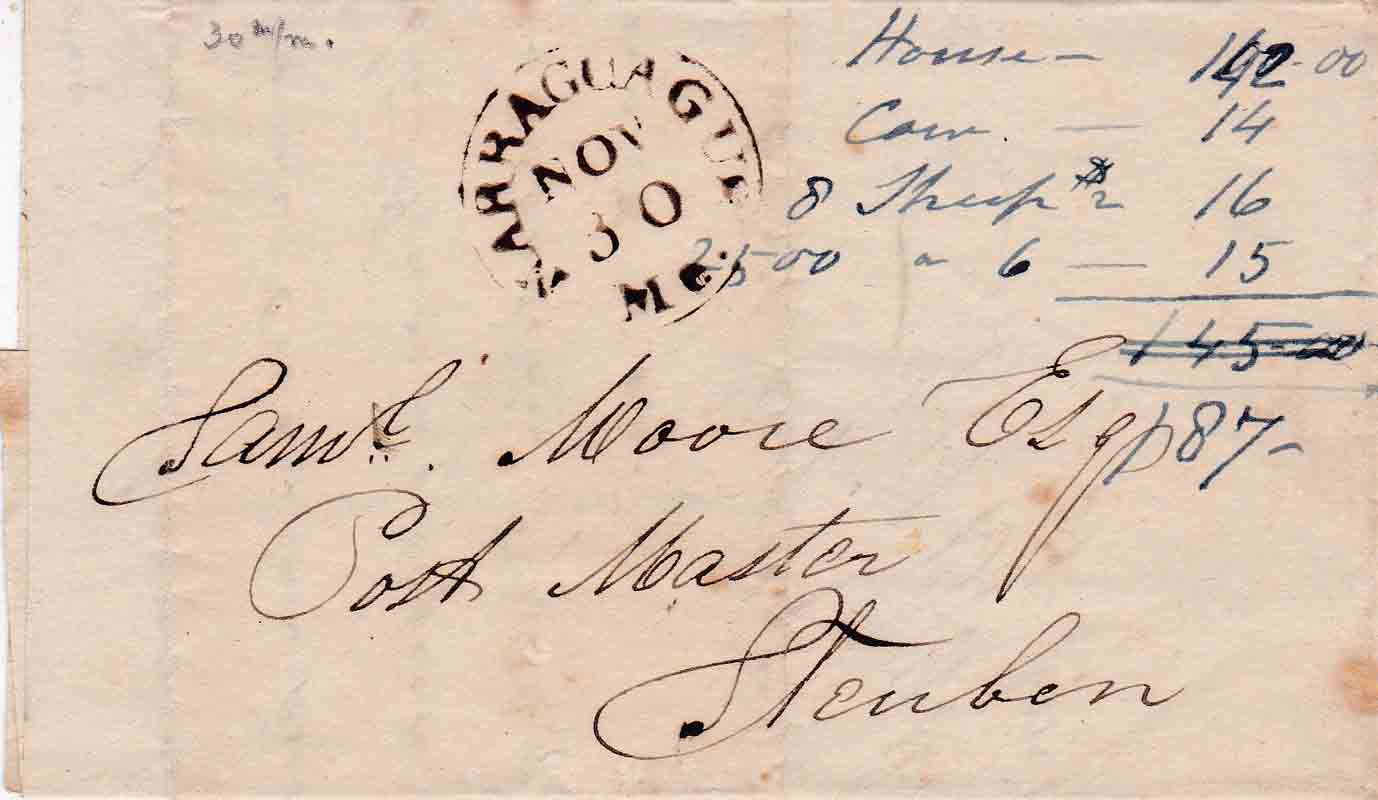 30 m/m.
NARRAGUAGUS
NOV
30
Me.
House — 142-00
Cow. — 14
8 Sheep $2 16
2500 a 6 — 15
145-00
187-
Saml. Moore Esq
Post Master
Steuben